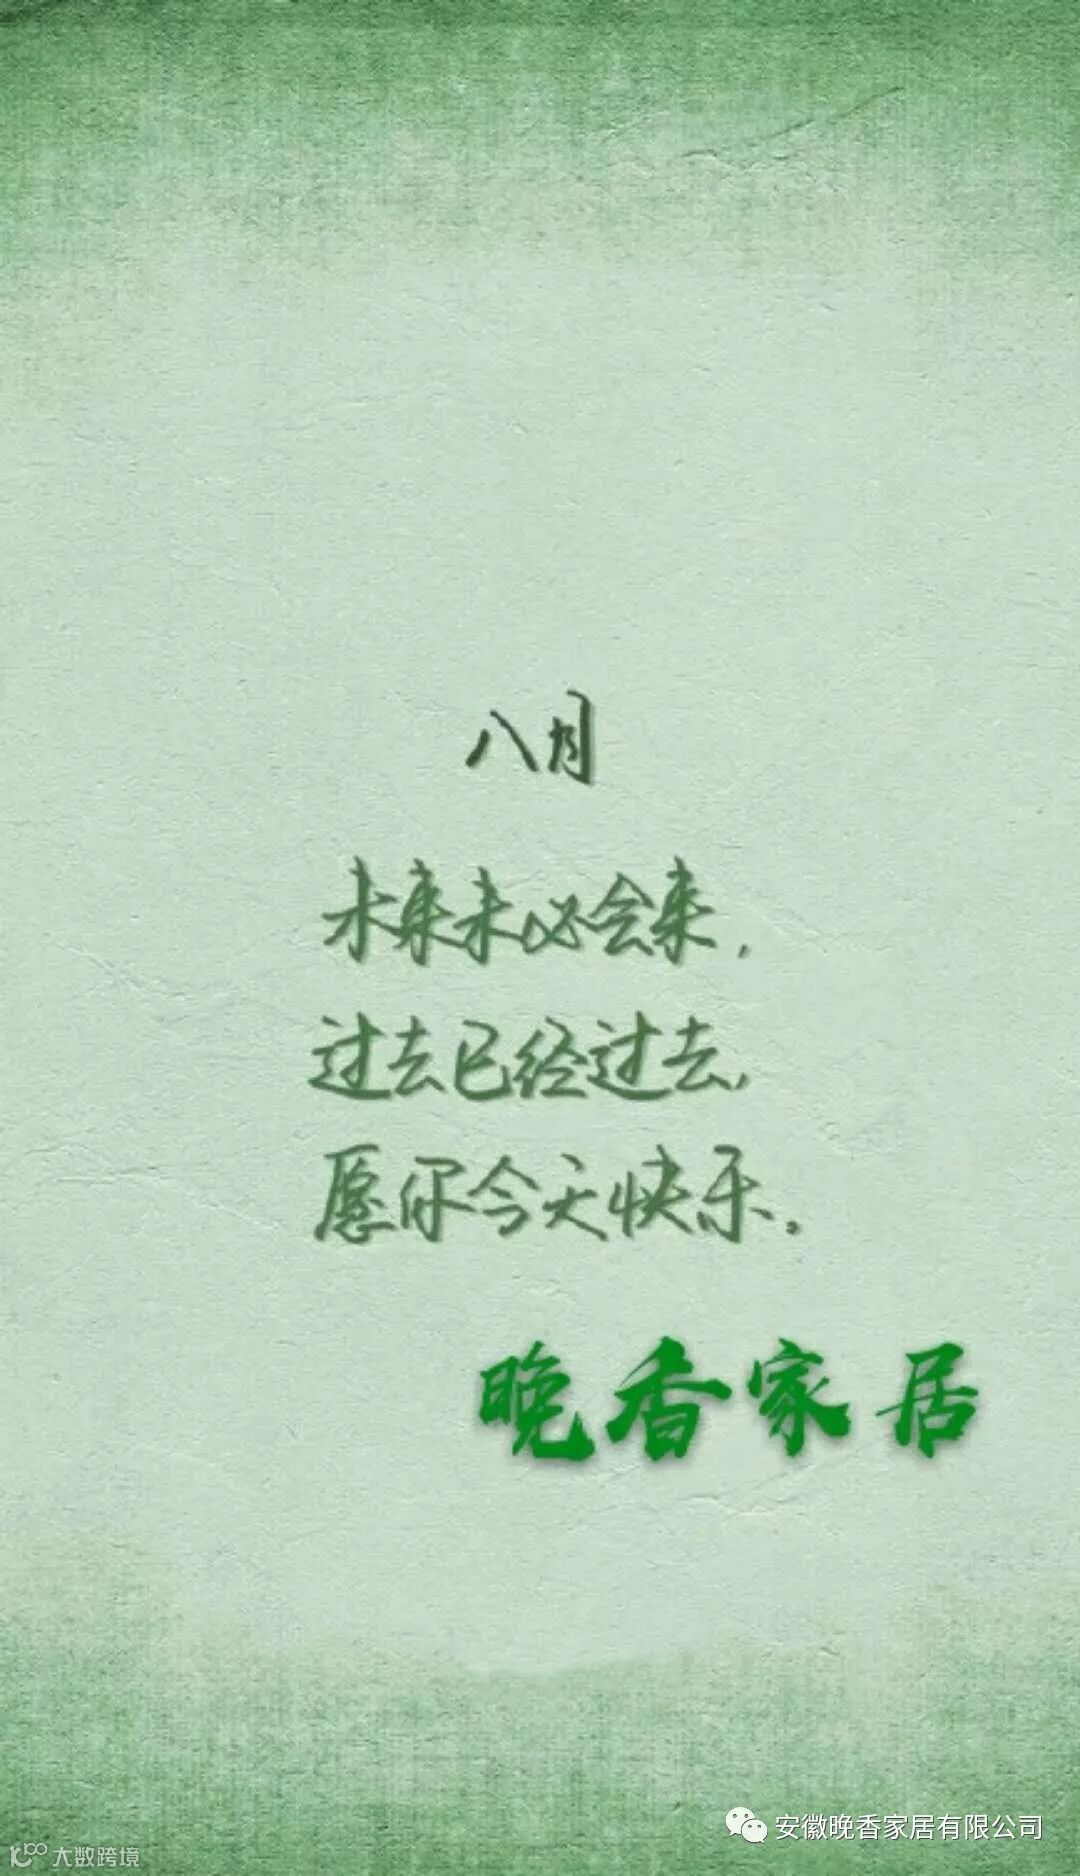 八月
未来未必会来，
过去已经过去，
愿你今天快乐。
晚香家居
安徽晚香家居有限公司
大数跨境